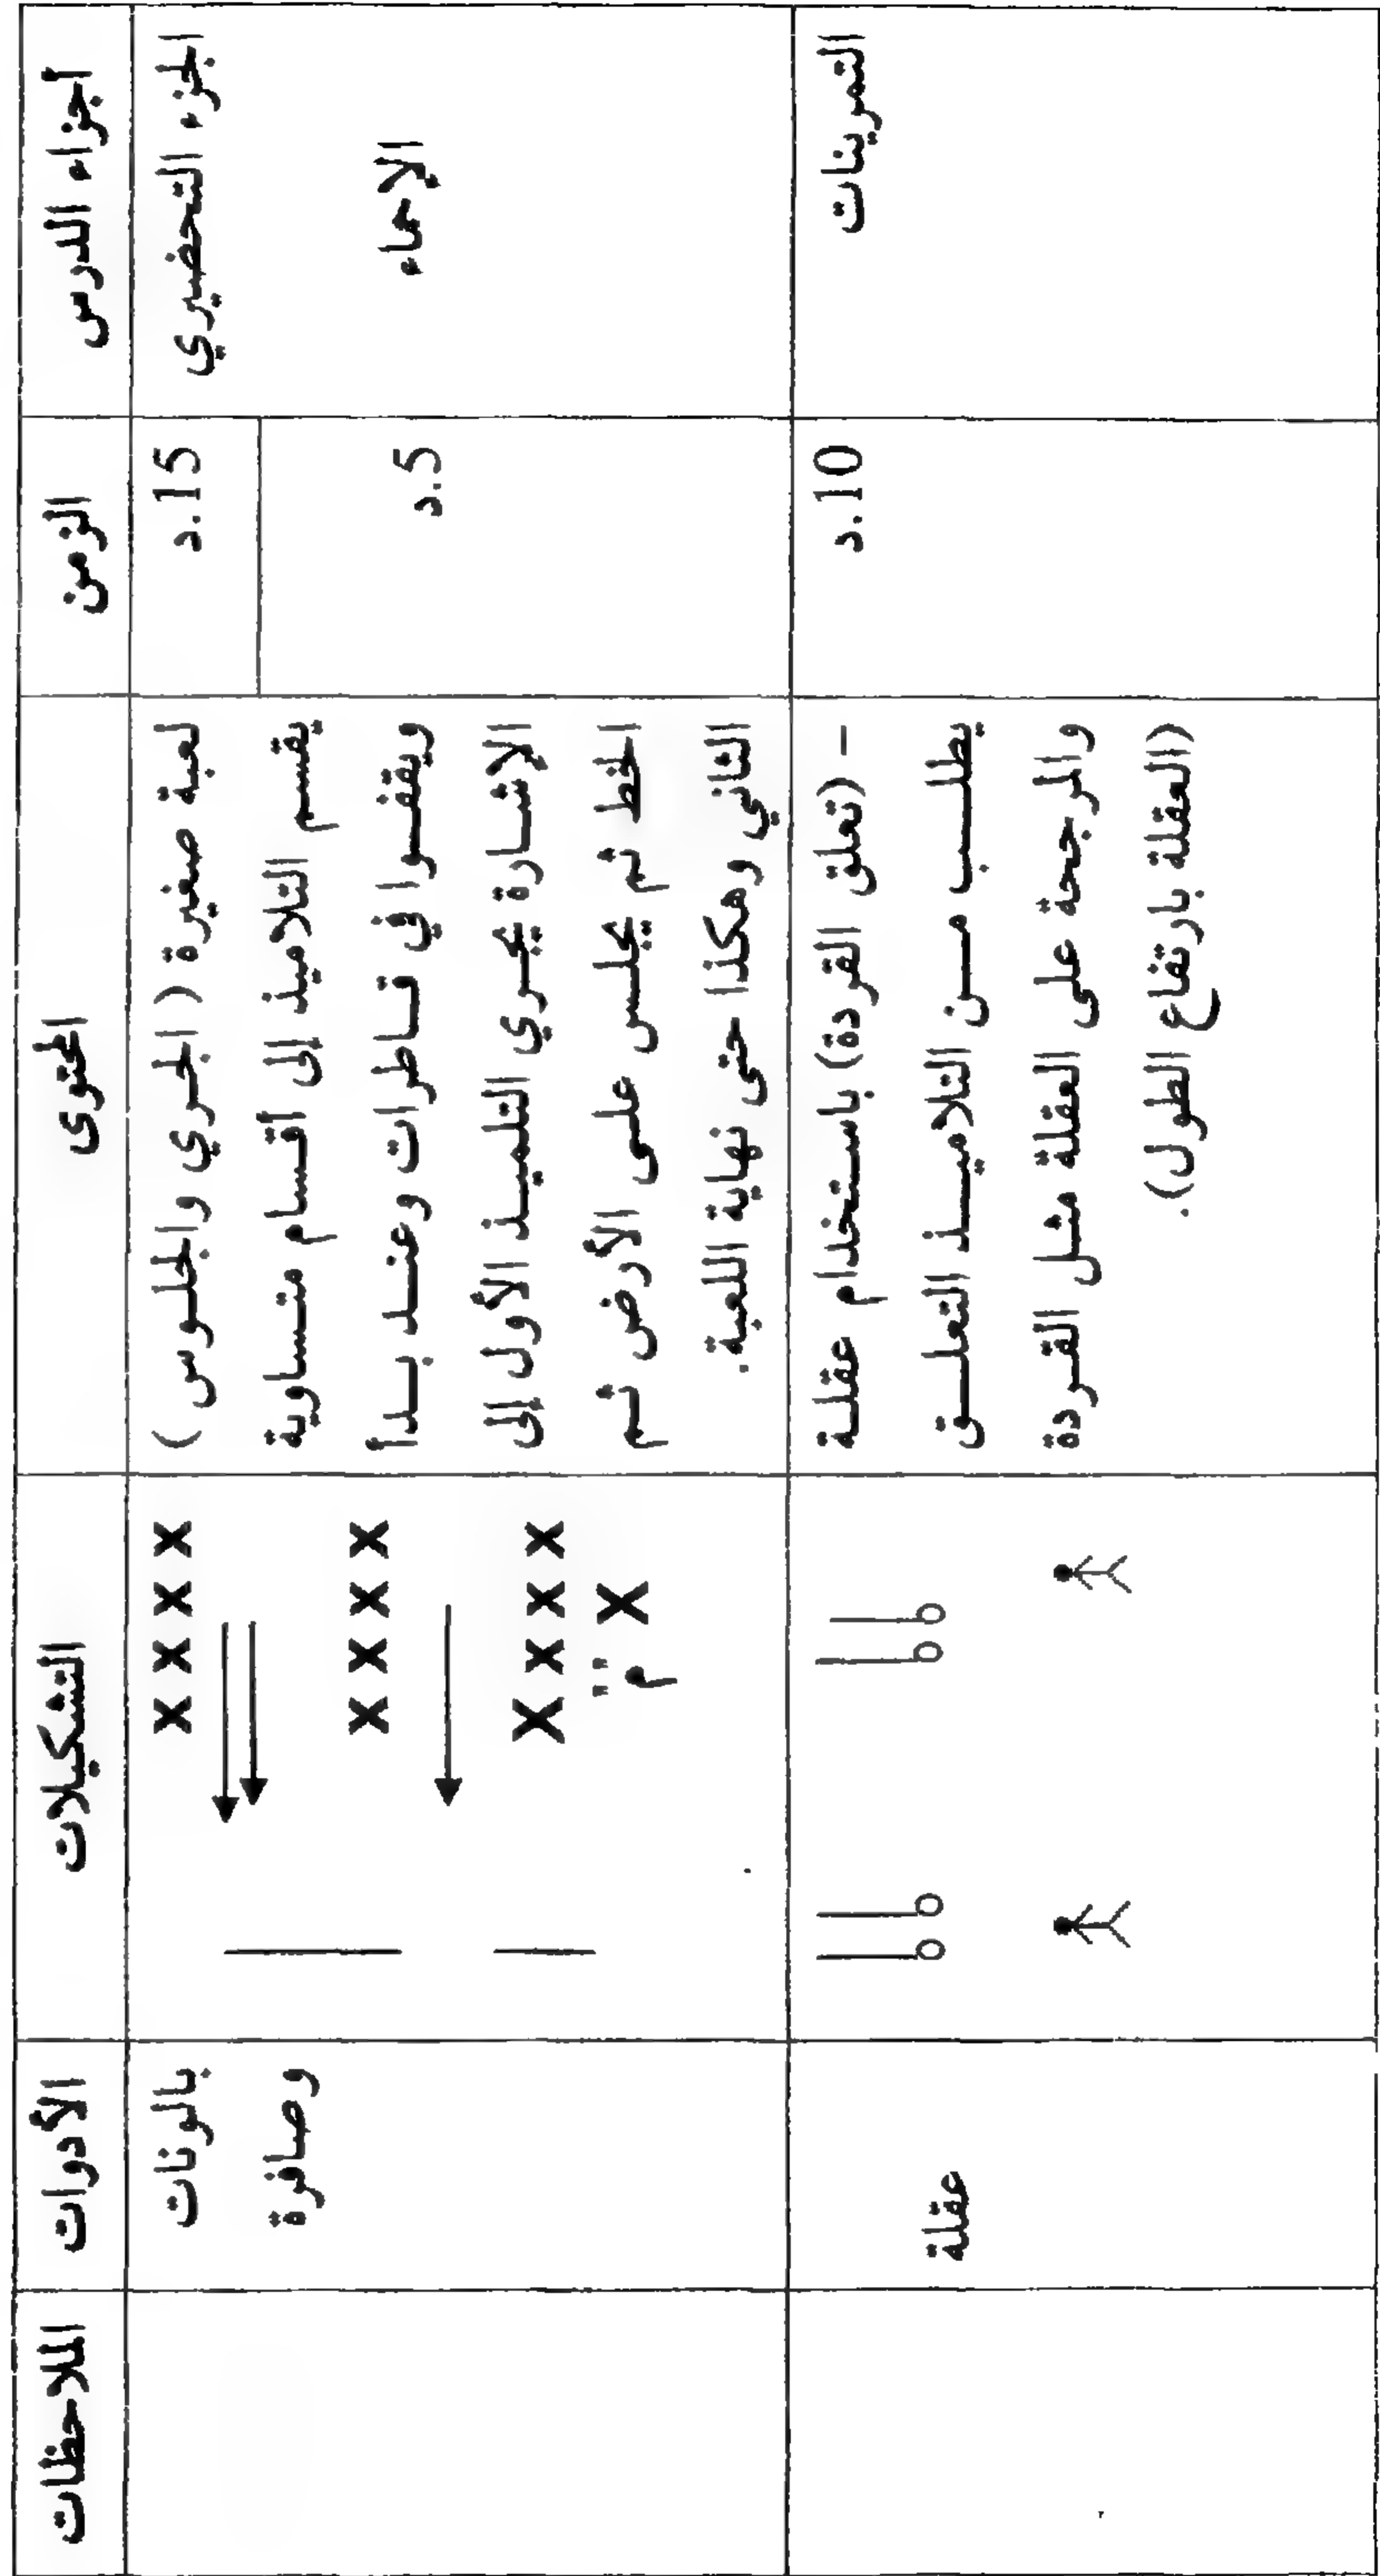 أجزاء الدرس
الزمن
المحتوى
التشكيلات
الأدوات
الملاحظات
الجزء التحضيري
الإحماء
15.د
5.د
لعبة صغيرة ( الجري والجلوس )
يقسم التلاميذ إلى أقسام متساوية
ويقفوا في قاطرات وعند بدأ
الإشارة يجري التلميذ الأول إلى
الخط ثم يجلس على الأرض ثم
الثاني وهكذا حتى نهاية اللعبة.
X X X X
X X X X
X X X X
"م" X
بالونات
وصافرة
التمرينات
10.د
– (تعلق القردة) باستخدام عقلة
يطلب من التلاميذ التعلق
والمرجحة على العقلة مثل القردة
(العقلة بارتفاع الطول).
عقلة